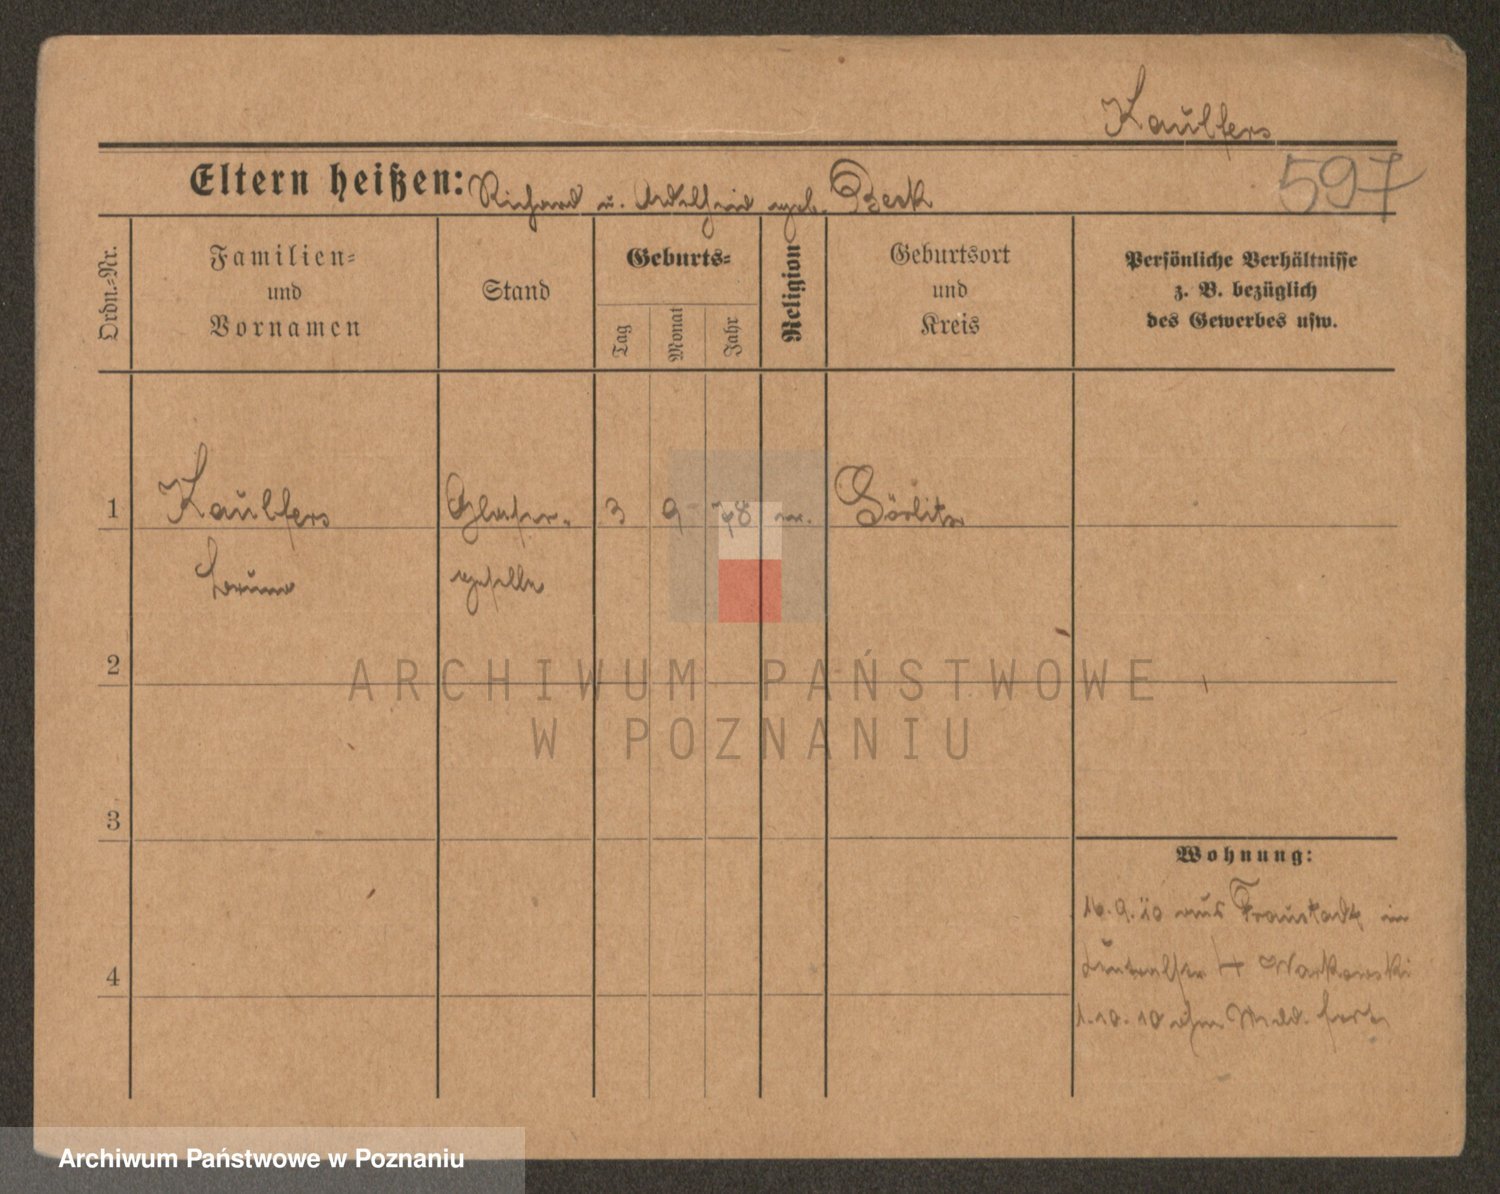 Kaulfers
Eltern heißen: Richard u. Adelheid geb. Beck
597
Ordn.-Nr.
Familien-
und
Vornamen
Stand
Geburts-
Tag
Monat
Jahr
Religion
Geburtsort
und
Kreis
Persönliche Verhältnisse
z. B. bezüglich
des Gewerbes usw.
1 Kaulfers Glaser- 3 9 78 ev. Görlitz
Bruno geselle
2
3
4
Wohnung:
16.9.10 aus Fraustadt in
1.10.10 ohne Meld. fort
ARCHIWUM PAŃSTWOWE
W POZNANIU
Archiwum Państwowe w Poznaniu